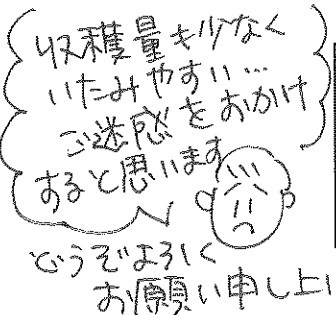 収穫量も少なく
いたみやすい…
ご迷惑をおかけ
すると思います
どうぞよろしく
お願い申し上